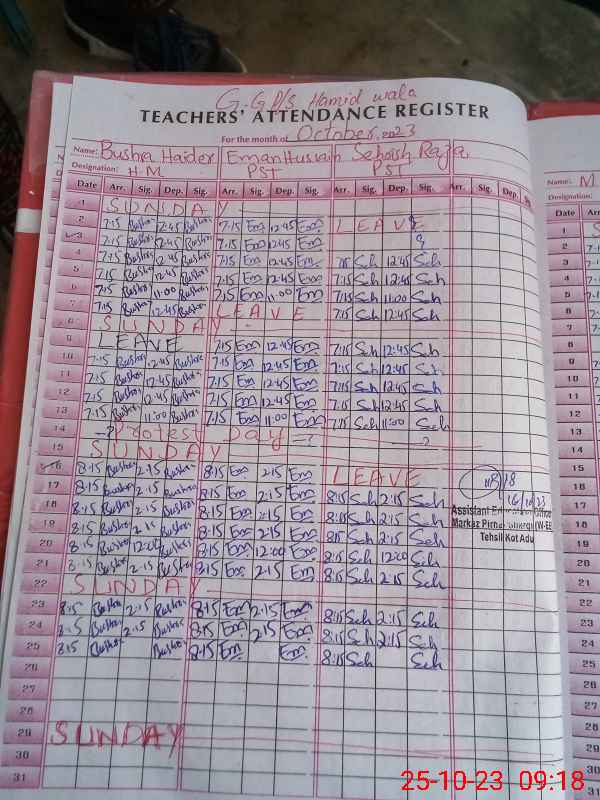 G.G P/S Hamid wala
TEACHERS' ATTENDANCE REGISTER
For the month of October, 2023
Name: Bushra Haider Eman Hussain Sehrish Raza
Designation: H.M PST PST
Date Arr. Sig. Dep. Sig. Arr. Sig. Dep. Sig. Arr. Sig. Dep. Sig. Arr. Sig. Dep. Sig.
1 SUNDAY
2 7:15 Bushra 12:45 Bushra 7:15 Em 12:45 Em LEAVE
3 7:15 Bushra 12:45 Bushra 7:15 Em 12:45 Em
4 7:15 Bushra 12:45 Bushra 7:15 Em 12:45 Em 7:15 Seh 12:45 Seh
5 7:15 Bushra 12:45 Bushra 7:15 Em 12:45 Em 7:15 Seh 12:45 Seh
6 7:15 Bushra 11:00 Bushra 7:15 Em 11:00 Em 7:15 Seh 11:00 Seh
7 7:15 Bushra 12:45 Bushra LEAVE 7:15 Seh 12:45 Seh
8 SUNDAY
9 LEAVE 7:15 Em 12:45 Em 7:15 Seh 12:45 Seh
10 7:15 Bushra 12:45 Bushra 7:15 Em 12:45 Em 7:15 Seh 12:45 Seh
11 7:15 Bushra 12:45 Bushra 7:15 Em 12:45 Em 7:15 Seh 12:45 Seh
12 7:15 Bushra 12:45 Bushra 7:15 Em 12:45 Em 7:15 Seh 12:45 Seh
13 7:15 Bushra 11:00 Bushra 7:15 Em 11:00 Em 7:15 Seh 11:00 Seh
14 Protest Day
15 SUNDAY
16 8:15 Bushra 2:15 Bushra 8:15 Em 2:15 Em LEAVE
17 8:15 Bushra 2:15 Bushra 8:15 Em 2:15 Em 8:15 Seh 2:15 Seh
18 8:15 Bushra 2:15 Bushra 8:15 Em 2:15 Em 8:15 Seh 2:15 Seh
19 8:15 Bushra 2:15 Bushra 8:15 Em 2:15 Em 8:15 Seh 2:15 Seh
20 8:15 Bushra 12:00 Bushra 8:15 Em 12:00 Em 8:15 Seh 12:00 Seh
21 8:15 Bushra 2:15 Bushra 8:15 Em 2:15 Em 8:15 Seh 2:15 Seh
16/10/23
Assistant
Markaz
Tehsil Kot Adu
22 SUNDAY
23 8:15 Bushra 2:15 Bushra 8:15 Em 2:15 Em 8:15 Seh 2:15 Seh
24 8:15 Bushra 2:15 Bushra 8:15 Em 2:15 Em 8:15 Seh 2:15 Seh
25 8:15 Bushra Bushra 8:15 Em Em 8:15 Seh Seh
26
27
28
29 SUNDAY
30
31
25-10-23 09:18